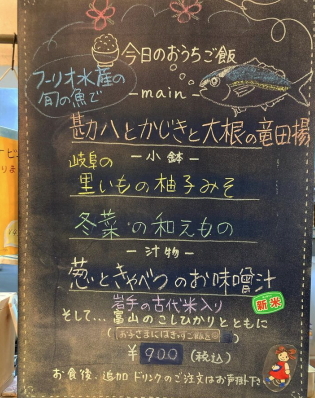 今日のおうちご飯
フーリオ水産の
旬の魚で
-main-
勘八とかじきと大根の竜田揚
-小鉢-
岐阜の
里いもの柚子みそ
冬菜の和えもの
-汁物-
葱ときゃべつのお味噌汁
岩手の古代米入り
新米
そして…富山のこしひかりとともに
￥900(税込)
お食後、追加ドリンクのご注文はお声掛け下さい